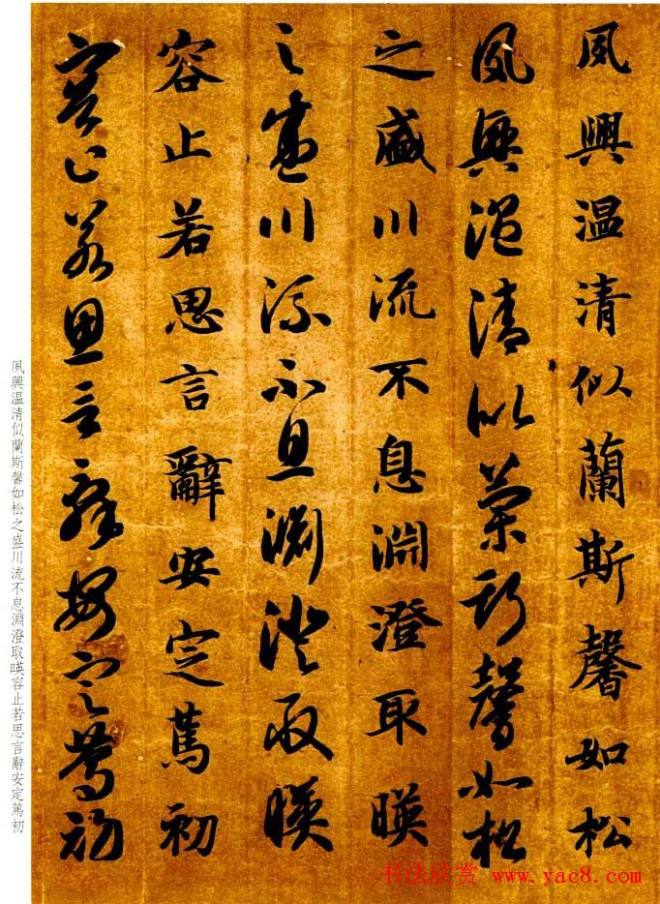 夙興温凊似蘭斯馨如松
夙興温清似蘭斯馨如松
之盛川流不息淵澄取暎
之盛川流不息淵澄取暎
容止若思言辭安定篤初
容止若思言辭安定篤初
夙興温清似蘭斯馨如松之盛川流不息淵澄取暎容止若思言辭安定篤初
书法欣赏 www.yac8.com